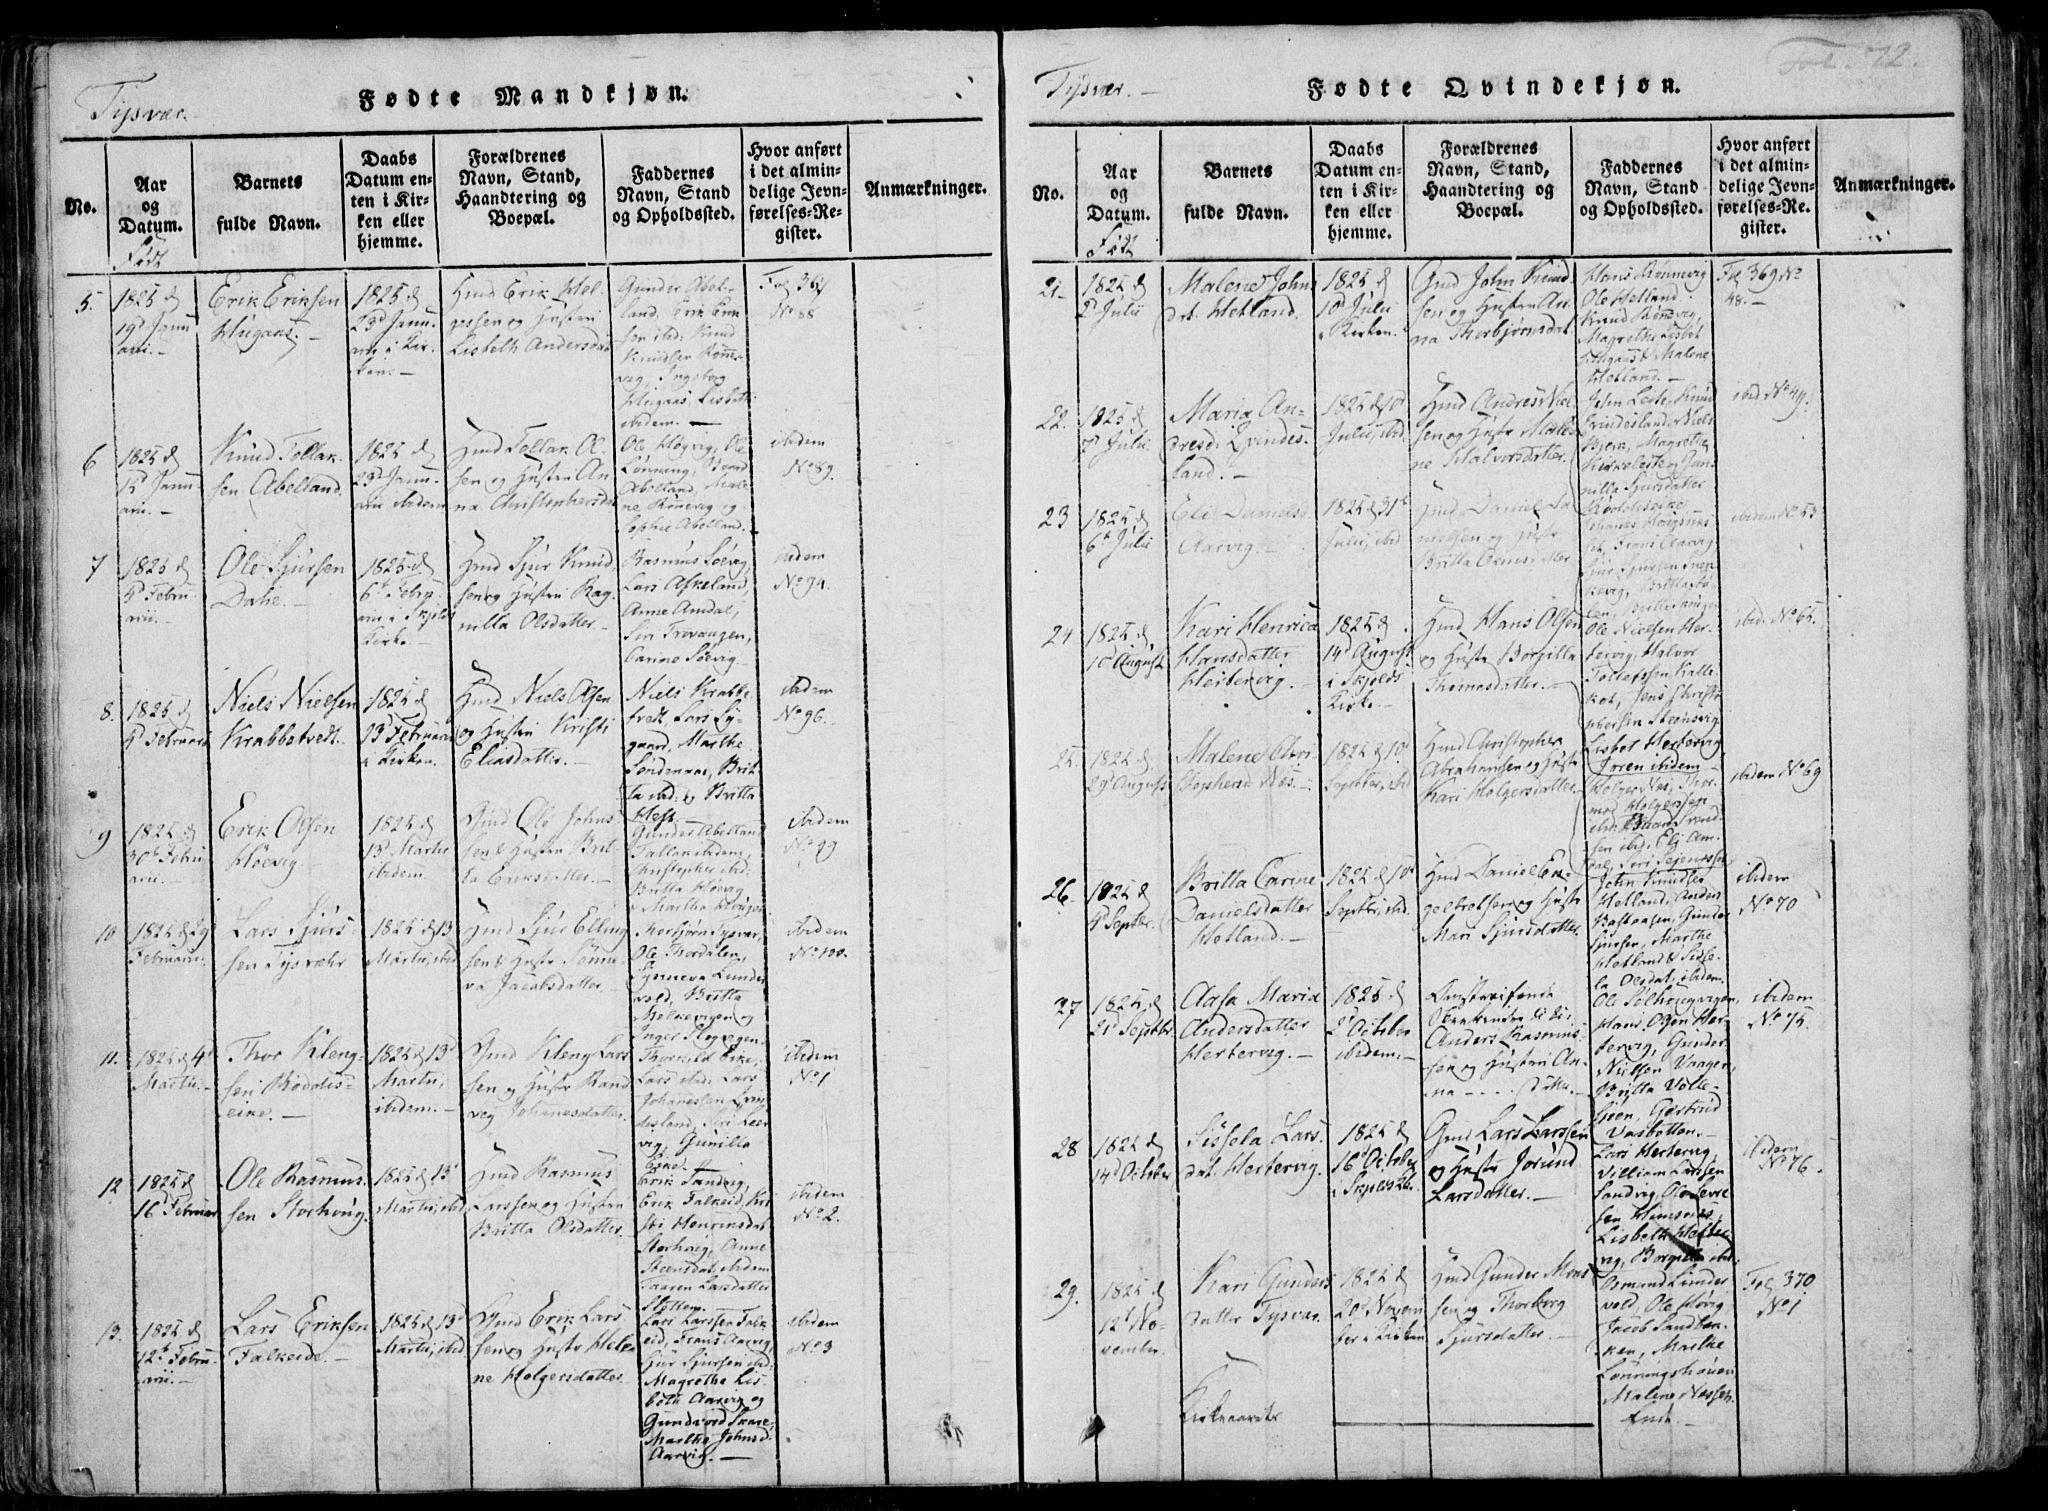 Tysvær.
Fødte Mandkjøn.
No.
Aar
og
Datum.
Født
Barnets
fulde Navn.
Daabs
Datum en-
ten i Kir-
ken eller
hjemme.
Forældrenes
Navn, Stand,
Haandtering og
Boepæl.
Faddernes
Navn, Stand
og Opholdssted.
Hvor anført
i det almin-
delige Jevn-
førelses-Re-
gister.
Anmærkninger.
5.
1825 d
19d Janu
arii.
Erik Eriksen
Høigaas.
1825 d
23d Janu-
arii i Kir-
ken.
Gmd Erik Hel-
gesen og Hustru
Lisbeth Andersdat
Gunder Abel-
land, Erik Erik
sen ibd: Knud
Knudsen Rønne-
vig, Ingeborg
Høigaas, Lisbeth
ibidem.
Fol 369
No 88
6
1825 d
15d Janu-
arii.
Knud Tollak-
sen Abelland.
1825 d
23d Janu-
arii ibidem
Gmd Tollak Ol-
sen og Hustru An-
na Christophersdat
Ole Høyvig, Ole
Lønning,
Abelland, Male-
ne Rønevig og
Sophie Abelland.
ibidem
No 89.
7
1825 d
4d Febru-
arii.
Ole Sjursen
Dahe.
1825 d
6t Febru
arii i Skjold
Kirke.
Gmd Sjur Knud
sen og Hustru Rag-
nilla Olsdatter.
Rasmus Søevig,
Lars Askeland,
Anne Amdal,
Siri Trovaagen,
Carine Søevig.
ibidem
No 94.
8.
1825 d
4d Februarii
Niels Nielsen
Krabbetvedt.
1825 d
13d Februarii
i Kirken.
Gmd Niels Olsen
og Hustru Kristi
Eliasdatter.
Niels Krabbe-
tvedt, Lars Ly-
gaard, Marthe
Søndenaae, Brit-
ta ibd: og Britta
Hest.
ibidem
No 96.
9
1825 d
30t Febru
arii.
Erik Olsen
Høevig.
1825 d
13d Martii
ibidem.
Gmd Ole Johns
sen & Hustru Brit-
ta Eriksdatter.
Gunder Abelland
Tollak ibidem,
Christopher ibd:
Britta Høevig
& Martha
ibidem
No 99
10
1825 d 29
Februarii.
Lars Sjurs-
sen Tysvæhr
1825 d 13
Martii, ibid
Gmd Sjur Elling
sen & Hustr Sønne-
va Jacobsdatter
Thorbjørn Tysvær,
Ole Thordalen,
Synneva Lunde-
vold, Britta
Melkevigen og
Inger
ibidem
No 100.
11.
1825 d 4d
Martii.
Thor Kleng-
sen Røddes-
eike.
1825 d 13d
Martii,
ibidem.
Gmd Kleng Lars
sen og Hustr Rand
veg Johanesdatter.
Thorkild Eike,
Lars ibd: Lars
Johanessen
land, Siri Leer
vig, Gunilla
Eike.
ibidem
No 1
12
1825 d
16t Februar
Ole Rasmus-
sen Storhøug.
1825 d 13d
Martii, ibid
Gmd Rasmus
Larssen og Hustru
Britta Olsdatter.
Erik Sandvig,
Erik Falkeid, Kri
sti Henriksdat
Storhoug, Anne
Steensdat. ibidem
Taaren Larsdatter
Slottem.
ibidem
No 2.
13.
1825 d
12t Febru
arii.
Lars Eriksen
Falkeide.
1825 d 13d
Martii, ibid
Gmd Erik Lars
sen og Hustr Hele-
ne Holgersdatter.
Lars Larssen Falk
eid, Frans Aarvig,
Sjur Sjursen ibd:
Magrethe Lis-
beth Aarvig og
Gundvord Skare,
Marthe Johnsd
Aarvig.
ibidem
No 3
Fol. 72.
Tysvær.
Fødte Qvindekjøn.
No.
Aar
og
Datum.
Født
Barnets
fulde Navn.
Daabs
Datum en-
ten i Kir-
ken eller
hjemme.
Forældrenes
Navn, Stand,
Haandtering og
Boepæl.
Faddernes
Navn, Stand
og Opholdssted.
Hvor anført
i det almin-
delige Jevn-
førelses-Re-
gister.
Anmærkninger.
21.
1825 d
2d Julii
Malene Johns
dat. Hetland.
1825 d
10d Julii
i Kirken.
Gmd John Knud-
sen og Hustru An-
na Thorbjørnsdat
Hans Rønnevig
Ole Hetland
Knud Rønevig,
Magrethe Lisbet
Høigaas & Malene
Hetland.
Fol 369 No
48.
22.
1825 d
7d Julii
Maria An-
dresd. Qvindes-
land.
1825 d 10d
Julii, ibd.
Gmd Andres Niel
sen og Hustr Male-
ne Halvorsdatter.
John Leite, Knud
Qvindesland, Niels
Bjerk, Magrethe
Kirkeleite og Gun-
nilla Sjursdatter
ibd No 49.
23
1825 d
6t Julii
Eli Danielsd
Aarvig.
1825 d 31t
Julii, ibd
Gmd Daniel Da
nielsen og Hustr
Britta
ibidem No 53
24
1825 d
10d August
Kari Henrica
Hansdatter
Hertervig.
1825 d
14d August
i Skjolds
Kirke.
Gmd Hans Olsen
og Hustr Borgilla
Thomasdatter.
Ole Nielsen Her-
tervig, Halvor
Tollefssen Kalle
kot, Jens Christo
phersen Steensvig
Lisbet Hertervig,
Joren ibidem
ibd. No 65.
25.
1825 d
29d August
Malene Chri
stophersd Næs.
1825 d 10d
September, ibd
Gmd Christopher
Abrahamsen og Hustr
Kari Holgersdatter
Holger Næs, Thor-
mod Holgersen
ibidem No 69
26.
1825 d
4d Septbr.
Britta Carine
Danielsdatter
Hetland.
1825 d 10d
Septbr, ibd.
Gmd Daniel En-
gebretsen og Hustr
Mari Sjursdatter.
John Knudsen
Hetland, Anders
Bastiansen, Gunder
Sjursen, Marthe
Hetland & Sidse-
la Olsdat. ibidem
ibidem
No 70
27
1825 d
21d Septbr
Aasa Maria
Andersdatter
Hertervig.
1825 d
2d October
ibidem.
Omstreifende
Anders Rasmus-
sen og Hustru An-
na
Ole
Hans Olsen Her-
tervig, Gunder
Nielsen Vaagen,
Britta Volle-
sjøen, Gertrud
Vasbotten.
ibidem
No 75.
28
1825 d
14d October
Sissela Lars-
dat. Hertervig.
1825 d
16d October
i Skjolds K.
Gmd Lars Larssen
og Hustr Jorund
Larsdatter.
Lars Hertervig
Villiam Larssen
Sandvig, Ole
sen
Lisbeth Herter-
vig, Borgilla ibd.
ibidem
No 76.
29.
1825 d
12t No-
vember.
Kari Gunders
datter Tysvær.
1825 d
20d Novem
ber i Kirken
Gmd Gunder Mons
sen og Thorborg
Sjursdatter.
Osmund Lunde
vold, Ole Høvig
Jacob Sandbek-
ken, Marthe
Lønningshouen
Malene Nessen.
Ende.
Fol 370
No 1